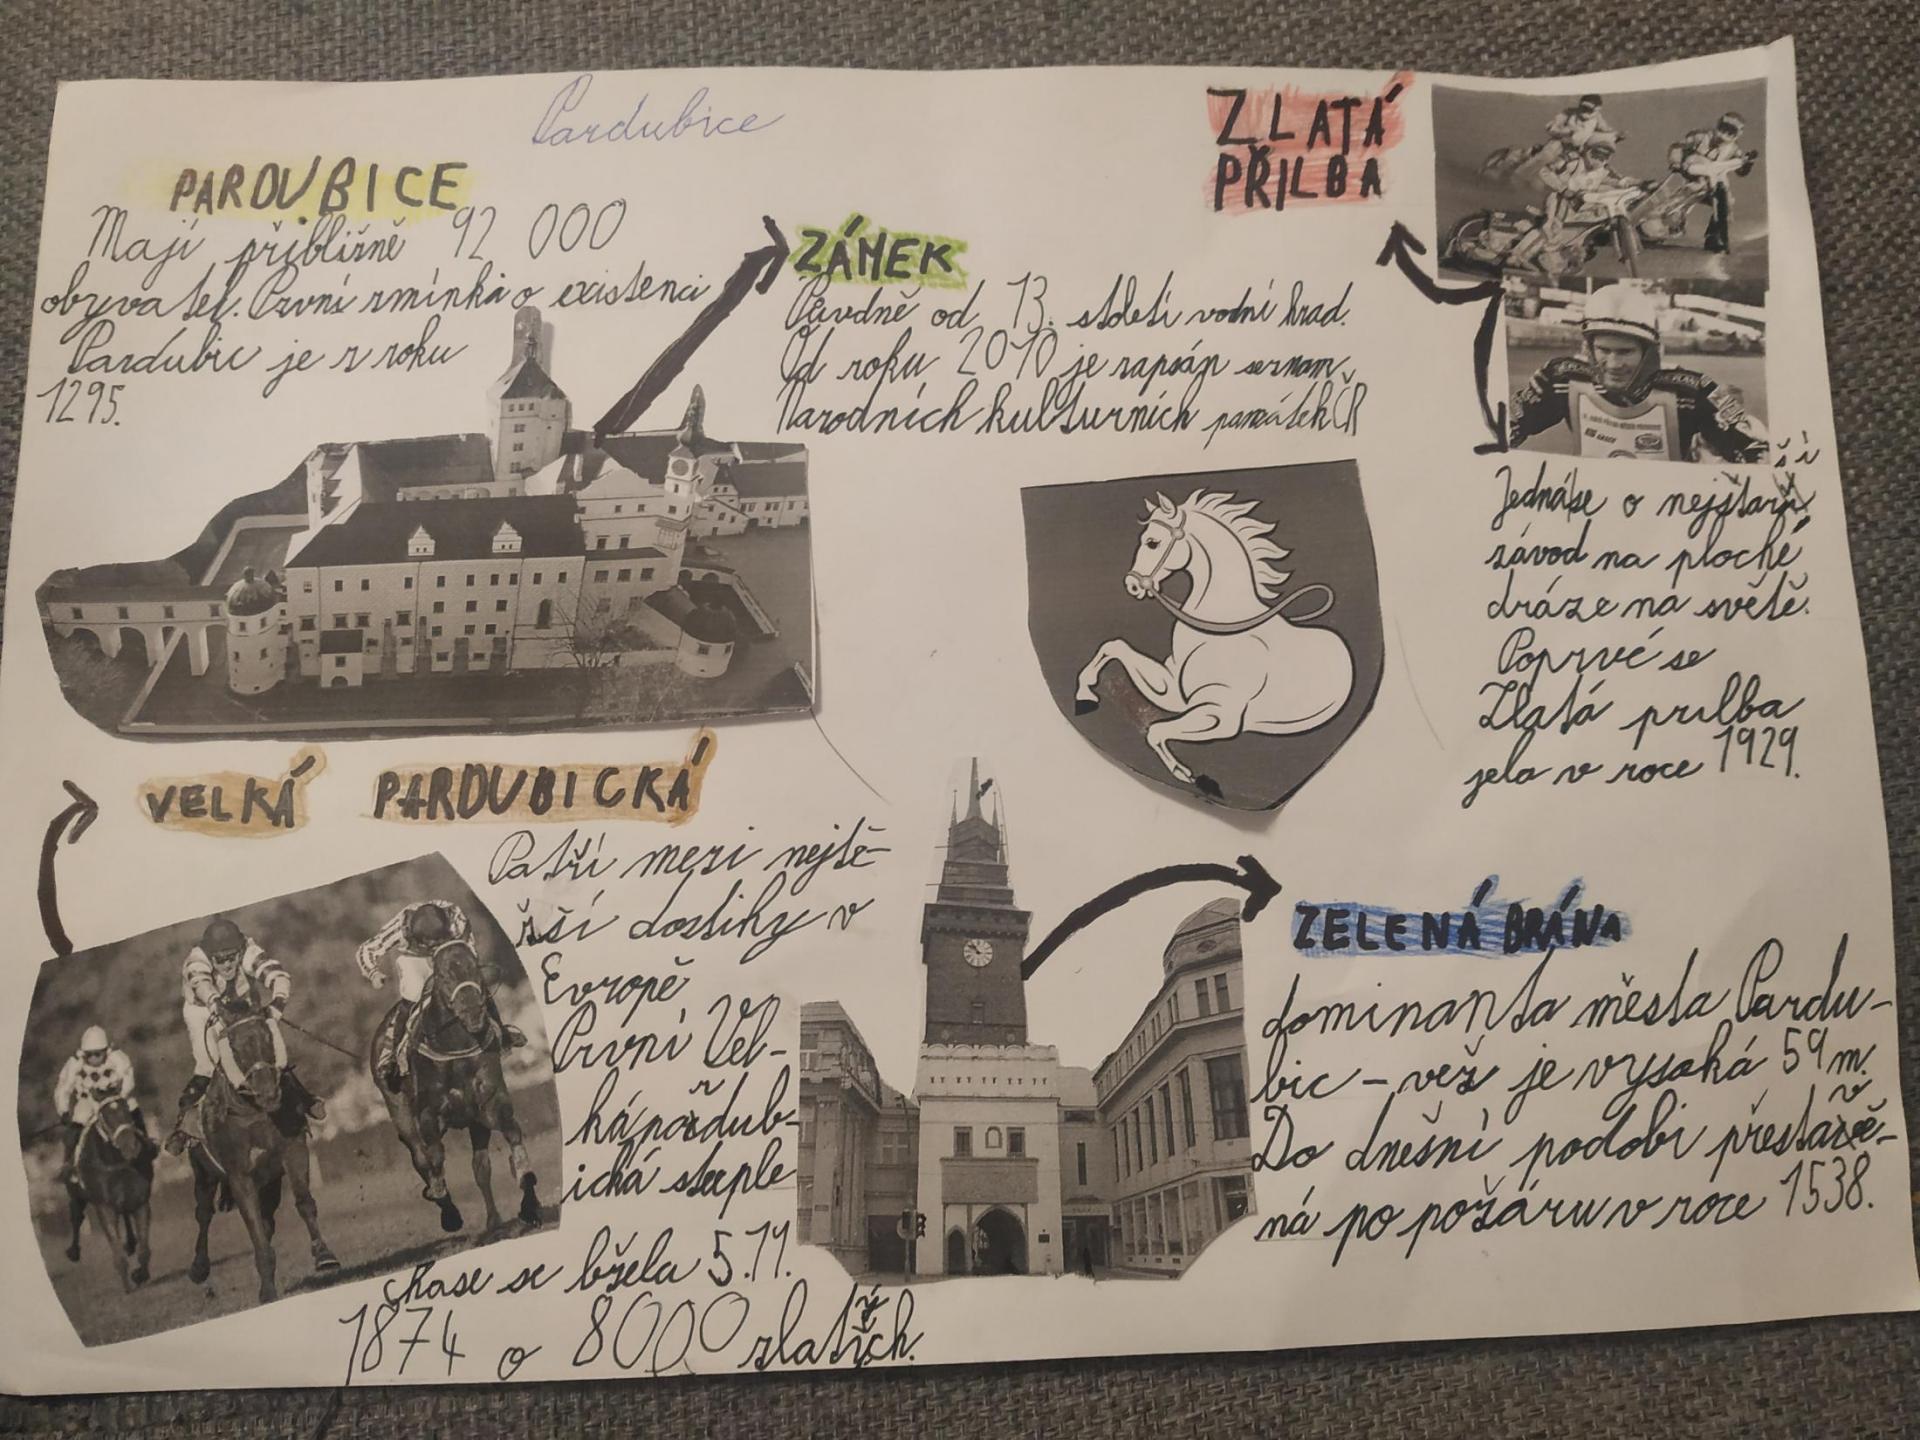 Pardubice
PARDUBICE
Mají přibližně 92 000
obyvatel. První zmínka o existenci
Pardubic je z roku
1295.
ZÁMEK
Původně od 13. století vodní hrad.
Od roku 2010 je zapsán seznam
Národních kulturních památek ČR
ZLATÁ
PŘILBA
Jedná se o nejstarší
závod na ploché
dráze na světě.
Poprvé se
Zlatá prilba
jela v roce 1929.
VELKÁ PARDUBICKÁ
Patří mezi nejtě-
žší dostihy v
Evropě
První Vel-
ká pardub-
ická steeple
chase se běžela 5.11.
1874 o 8000 zlatých.
ZELENÁ BRÁNA
dominanta města Pardu-
bic - věž je vysoká 59 m.
Do dnešní podobi přestavě-
ná po požáru v roce 1538.